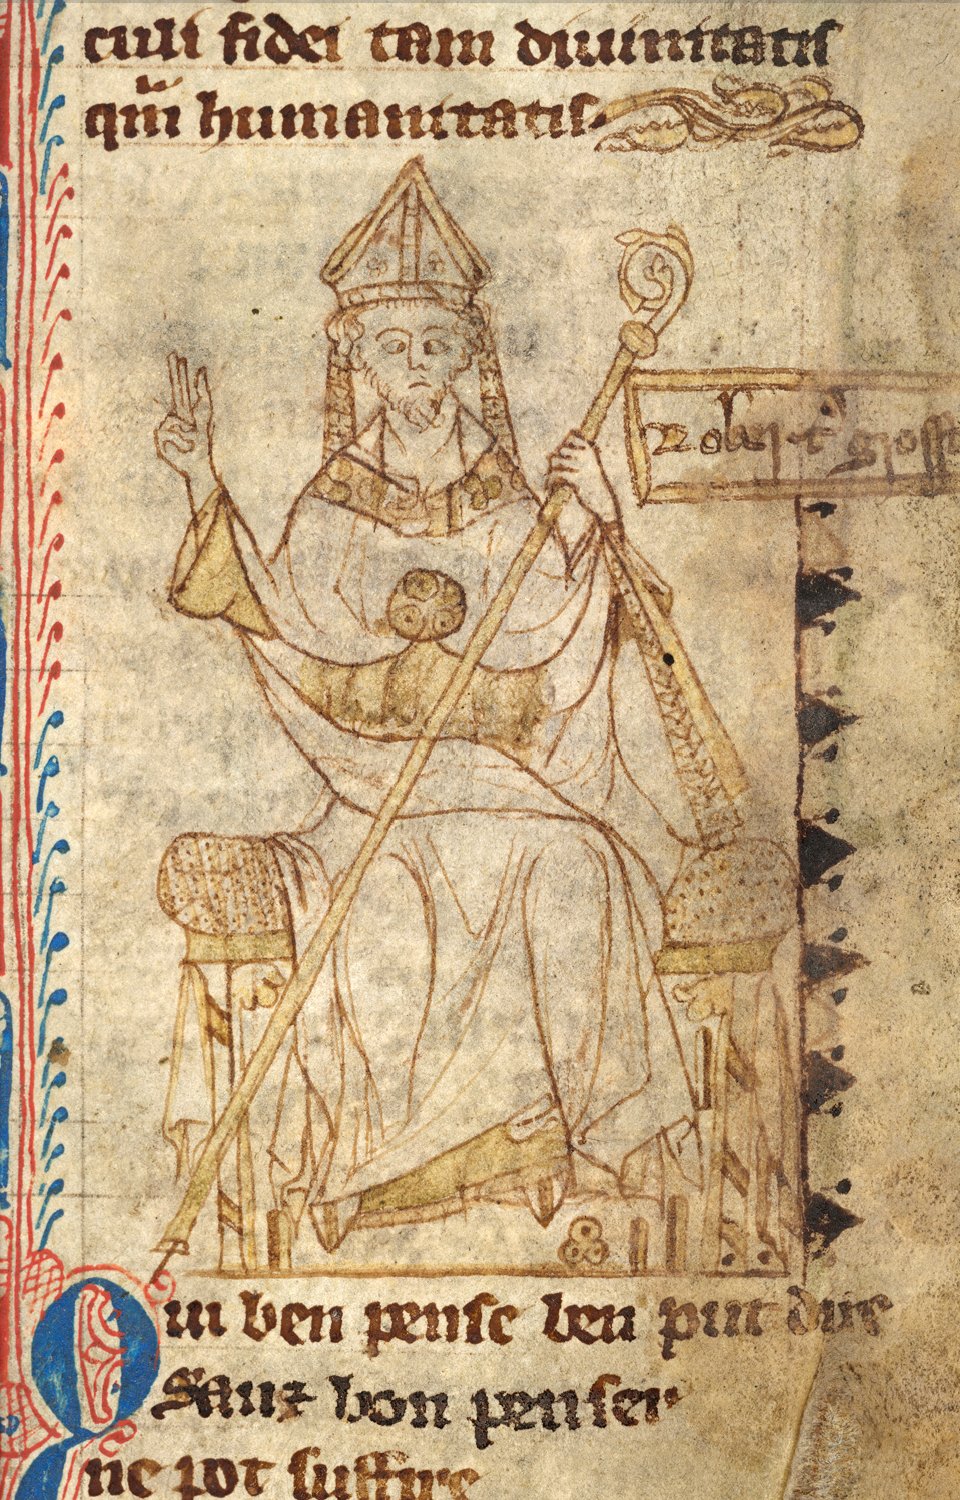 culi fidei tam diuinitatis
qm̅ humanitatis
Rob't grosse
Qui ben pense ben put dire
Sanz bon penser
ne pot suffire